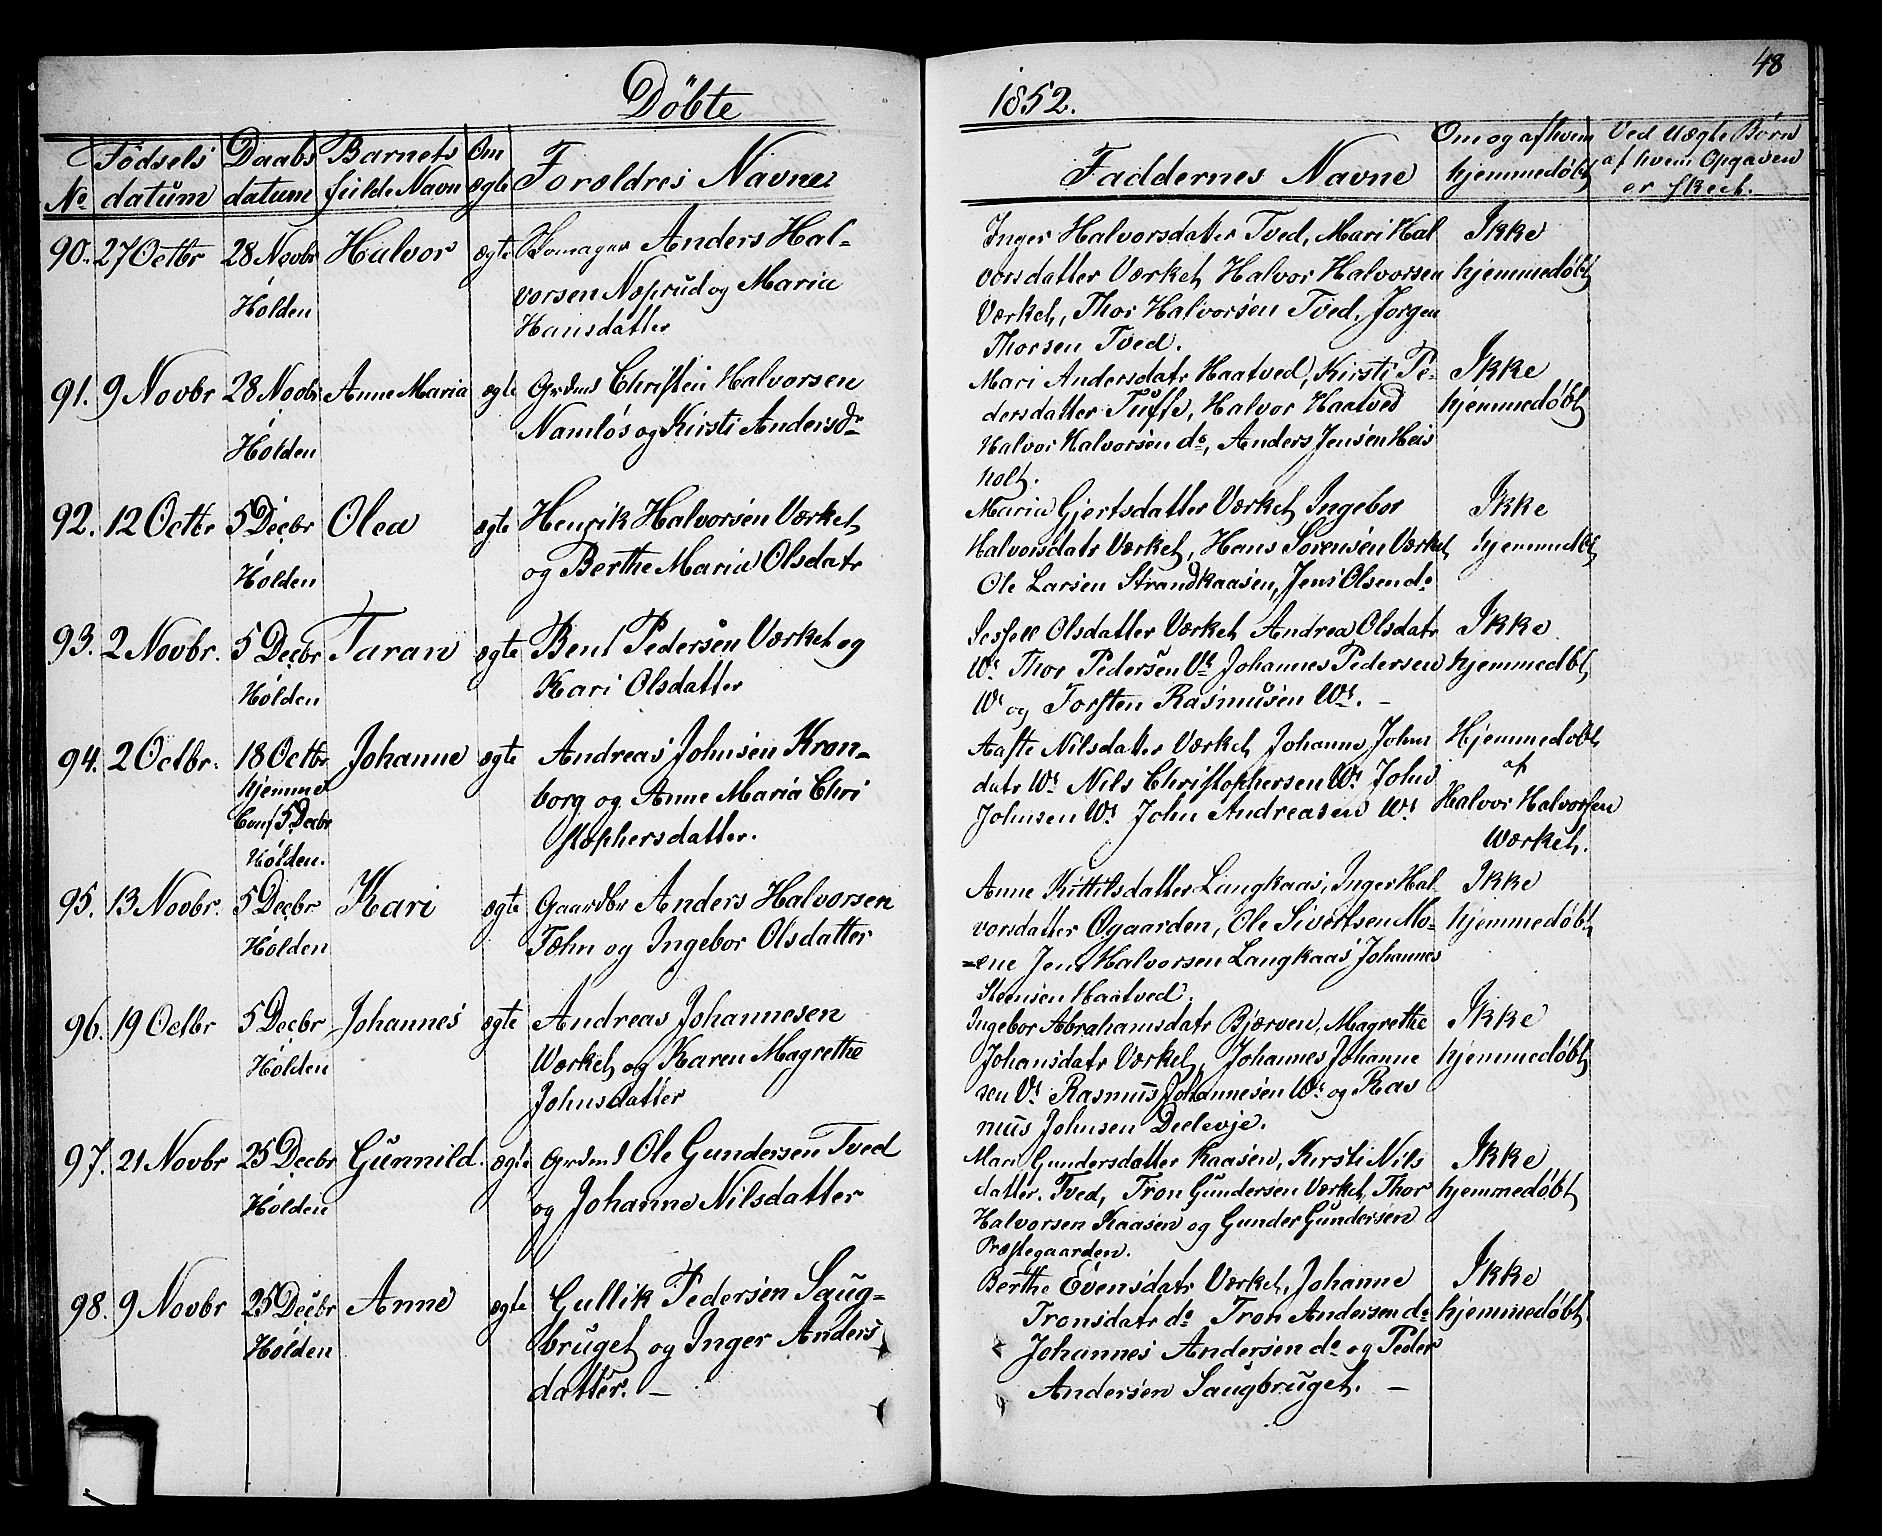 48
Döbte 1852.
No Födsels datum Daabs datum Barnets fulde Navn Om ægte Forældres Navne Faddernes Navne Om og af hvem hjemmedöbt Ved uægte Börn af hvem Opgaven er skeet.
90. 27 Octbr 28 Novbr Halvor ægte Anders Hal-
Holden
vorsen Næsrud og Maria
Hansdatter
Inger Halvorsdatter Tved, Mari Hal
vorsdatter Værket, Halvor Halvorsen
Værket, Thor Halvorsen Tved, Jorgen
Thorsen Tved.
Ikke
hjemmedöbt
91. 9 Novbr 28 Novbr Anne Maria ægte Grdmd Christen Halvorsen
Holden
Namlös og Kirsti Andersdr
Mari Andersdatr Haatved, Kirsti Pe-
dersdatter Tuffe, Halvor Haatved
Halvor Halvorsen do, Anders Jensen Heis
holt.
Ikke
hjemmedöbt
92. 12 Octbr 5 Decbr Olea ægte Henrik Halvorsen Værket
Holden
og Berthe Maria Olsdatr
Maria Gjertsdatter Værket, Ingebor
Halvorsdatr Værket, Hans Sorensen Værket
Ole Larsen Strandkaasen, Jens Olsen do
Ikke
hjemmedbt
93. 2 Novbr. 5 Decbr Taran ægte Bent Pedersen Værket og
Holden
Kari Olsdatter
Olsdatter Værket, Andrea Olsdatr
Wt Thor Pedersen Vt Johannes Pedersen
Wt og Torsten Rasmusen Wt. -
Ikke
hjemmedbt
94. 2 Octbr. 18 Octbr Johanne ægte Andreas Johnsen Kron-
hjemme
Conf 5 Decbr
Holden.
borg og Anne Maria Chri
stophersdatter.
Aaste Nilsdatter Værket, Johanne Johns
datr Wt Nils Christophersen Wt John
Johnsen Wt John Andreasen Wt
Hjemmedöbt
af
Halvor Halvorsen
Værket.
95. 13 Novbr. 5 Decbr Kari ægte Gaardbr Anders Halvorsen
Holden
Tæhn og Ingebor Olsdatter
Anne Kittilsdatter Langkaas, Inger Hal
vorsdatter Ögaarden, Ole Sivertsen Mo-
-ene Jens Halvorsen Langkaas Johannes
Steensen Haatved.
Ikke
hjemmedöbt
96. 19 Octbr 5 Decbr Johannes ægte Andreas Johannesen
Holden
Værket og Karen Magrethe
Johnsdatter
Ingebor Abrahamsdatr Bjærven, Magrethe
Johansdatr Værket, Johannes Johanne
sen Vt Rasmus Johannesen Wt og Ras
mus Johnsen Deelevje.
Ikke
hjemmedöbt
97. 21 Novbr 25 Decbr Gunnild. ægte Grdmd Ole Gundersen Tved
Holden
og Johanne Nilsdatter
Mari Gundersdatter Kaasen, Kirsti Nils
datter. Tved, Tron Gundersen Værket, Thor
Halvorsen Kaasen og Gunder Gundersen
Præstegaarden.
Ikke
hjemmedöbt
98. 9 Novbr 25 Decbr Anne ægte Gullik Pedersen Saug-
Holden
bruget og Inger Anders
datter. -
Berthe Evensdatr Værket, Johanne
Tronsdatr do Tron Andersen do
Johannes Andersen do og Peder
Andersen Saugbruget. -
Ikke
hjemmedöbt